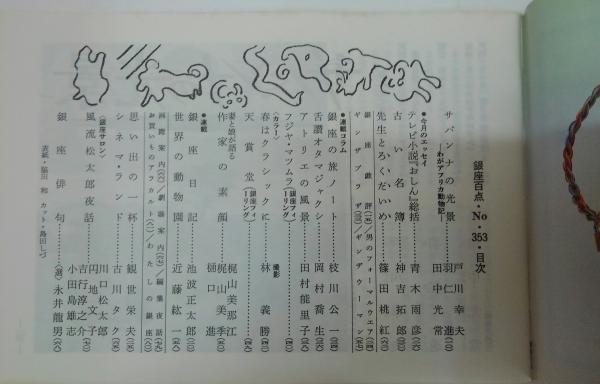 銀座百点・No・353・目次
サバンナの光景
―わがアフリカ動物記―
戸川幸夫
羽仁進
田中光常
●今月のエッセイ
テレビ小説『おしん』総括
青木雨彦
古い名簿
神吉拓郎
先生とろくだいめ
篠田桃紅
銀座戯評
男のフォーマルウエア
ギンザプラザ
ギンザウーマン
●連載コラム
銀座の旅ノート
枝川公一
舌讃オタマジャクシ
岡村喬生
アトリエの風景
田村能里子
フジヤ・マツムラ(銀座フィーリング)
〈カラー〉
春はクラシックに
撮影
林義勝
天賞堂(銀座フィーリング)
妻と娘が語る
作家の素顔
梶山美那江
梶山美季
樋口進
●連載
銀座日記
池波正太郎
世界の動物園
近藤紘一
画廊案内
演劇案内
編集夜話
お買いものアラカルト
わたしの銀座
思い出の一杯
観世栄夫
シネマ・ランド
古川タク
〈銀座サロン〉
風流松太郎夜話
川口松太郎
円地文子
吉行淳之介
小田島雄志
銀座俳句
(選)永井龍男
表紙・脇田和 カット・島田しづ